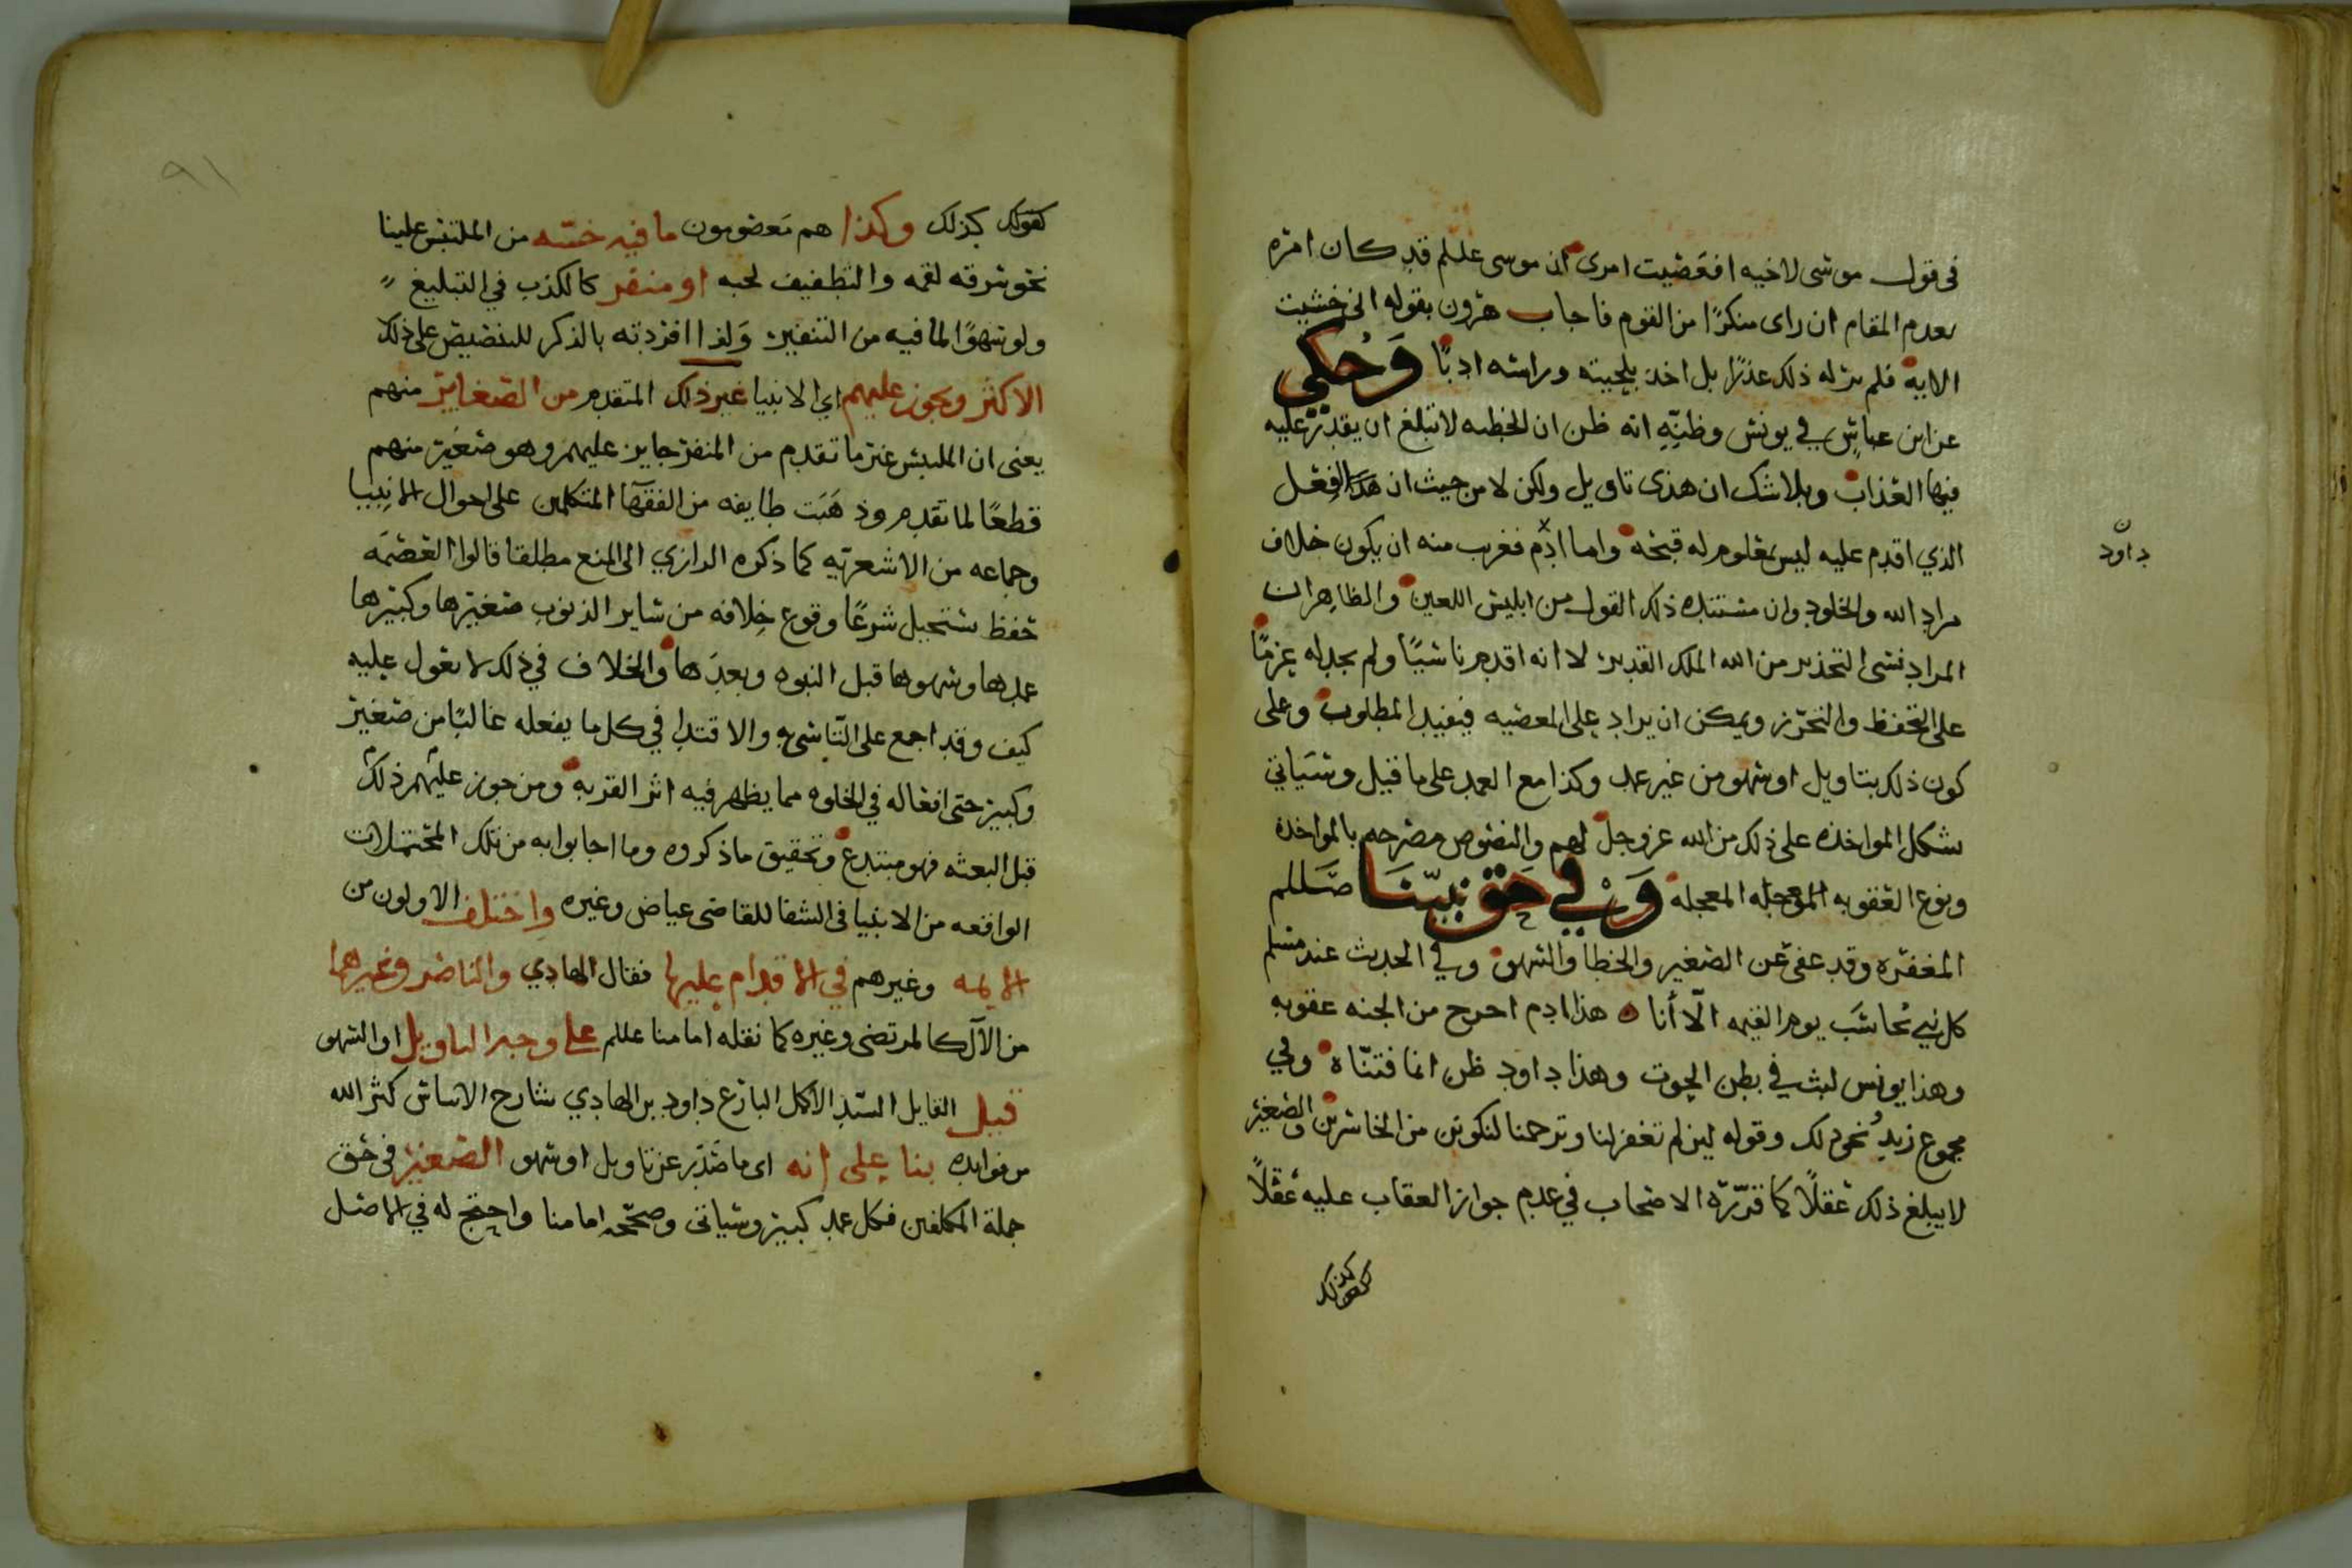 في قول موسى لاخيه افعصيت امرى ان موسى عللم قد كان امره
بعدم المقام ان راى منكرًا من القوم فاجاب هرون بقوله اني خشيت
الايه فلم ير له ذلك عذرًا بل اخذ بلحيته وراسه ادبًا وَحكي
عن ابن عباس في يونس وظنِّهِ انه ظن ان الخطيه لا تبلغ ان يقدر عليه
فيها العذاب وبلا شك ان هذى تاويل ولكن لا من حيث ان هذا الفعل
الذي اقدم عليه ليس بمعلوم له قبحه واما ادم فغرب منه ان يكون خلاف
مراد الله والخلود وان مستنده ذلك القول من ابليس اللعين والظاهر ان
المراد نسى التحذير من الله الملك القدير لا انه اقدم ناسيًا ولم نجد له عزمًا
على التحفظ والتحرز ويمكن ان يراد على المعصيه فيفيد المطلوب وعلى
كون ذلك بتاويل او سهو من غير عمد وكذا مع العمد على ما قيل وسياتي
يشكل المواخذه على ذلك من الله عز وجل لهم والنصوص مصرحه بالمواخذه
ونوع العقوبه المعجله وَفي حَق نبيّنَا صَللم
المغفره وقد عفي عن الصغير والخطا والسهو وفي الحديث عند مسلم
كل نبي يحاسَب يوم القيمه الّا أنا هذا ادم اخرج من الجنه عقوبه
وهذا يونس لبث في بطن الحوت وهذا داود ظن انما فتنّاه وفي
مجموع زيدٍ نحو ذلك وقوله لين لم تغفر لنا وترحمنا لنكونن من الخاسرين والصغير
لا يبلغ ذلك عقلًا كما قرّره الاصحاب في عدم جواز العقاب عليه عقلًا
كقولك كذلك
داود
٩١
كقولك كذلك وكذا هم مَعصومون ما فيه خسّه من الملتبس علينا
نحو سرقه لقمه والتطفيف لحبه او منفر كالكذب في التبليغ
ولو سهوًا لما فيه من التنفير وَلذا افردته بالذكر للتنصيص على ذلك
الاكثر ويجوز عليهم اي الانبيا غير ذلك المتقدم من الصغاير منهم
يعنى ان الملتبس غير ما تقدم من المنفر جايز عليهم وهو صغير منهم
قطعًا لما تقدم وذهَبَت طايفه من الفقها المتكلمين على احوال الانبيا
وجماعه من الاشعريه كما ذكره الرازي الى المنع مطلقا قالوا العصمَه
حفظ يستحيل شرعًا وقوع خلافه من ساير الذنوب صغيرها وكبيرها
عمدها وسهوها قبل النبوه وبعدَها والخلاف في ذلك لا يعول عليه
كيف وقد اجمع على التاسي به والاقتدا في كل ما يفعله غالبًا من صغير
وكبير حتى افعاله في الخلوه مما يظهر فيه اثر القربه ومن جوز عليهم ذلك
قبل البعثه فهو مبتدع وتحقيق ما ذكروه وما اجابوا به من تلك المحتملات
الواقعه من الانبيا في الشفا للقاضى عياض وغيره واختلف الاولون من
الايمه وغيرهم في الاقدام عليها فقال الهادي والناصر وغيرهما
من الآل كالمرتضى وغيره كما نقله امامنا عللم على وجه التاويل او السهو
قيل القايل السيد الاكمل البارع داود بن الهادي شارح الاساس كثر الله
من فوايده بنا على انه اى ما صَدَر عن تاويل او سهو الصغير في حق
جملة المكلفين فكل عمد كبير وسياتى وصحّحه امامنا واحتج له في الاصل